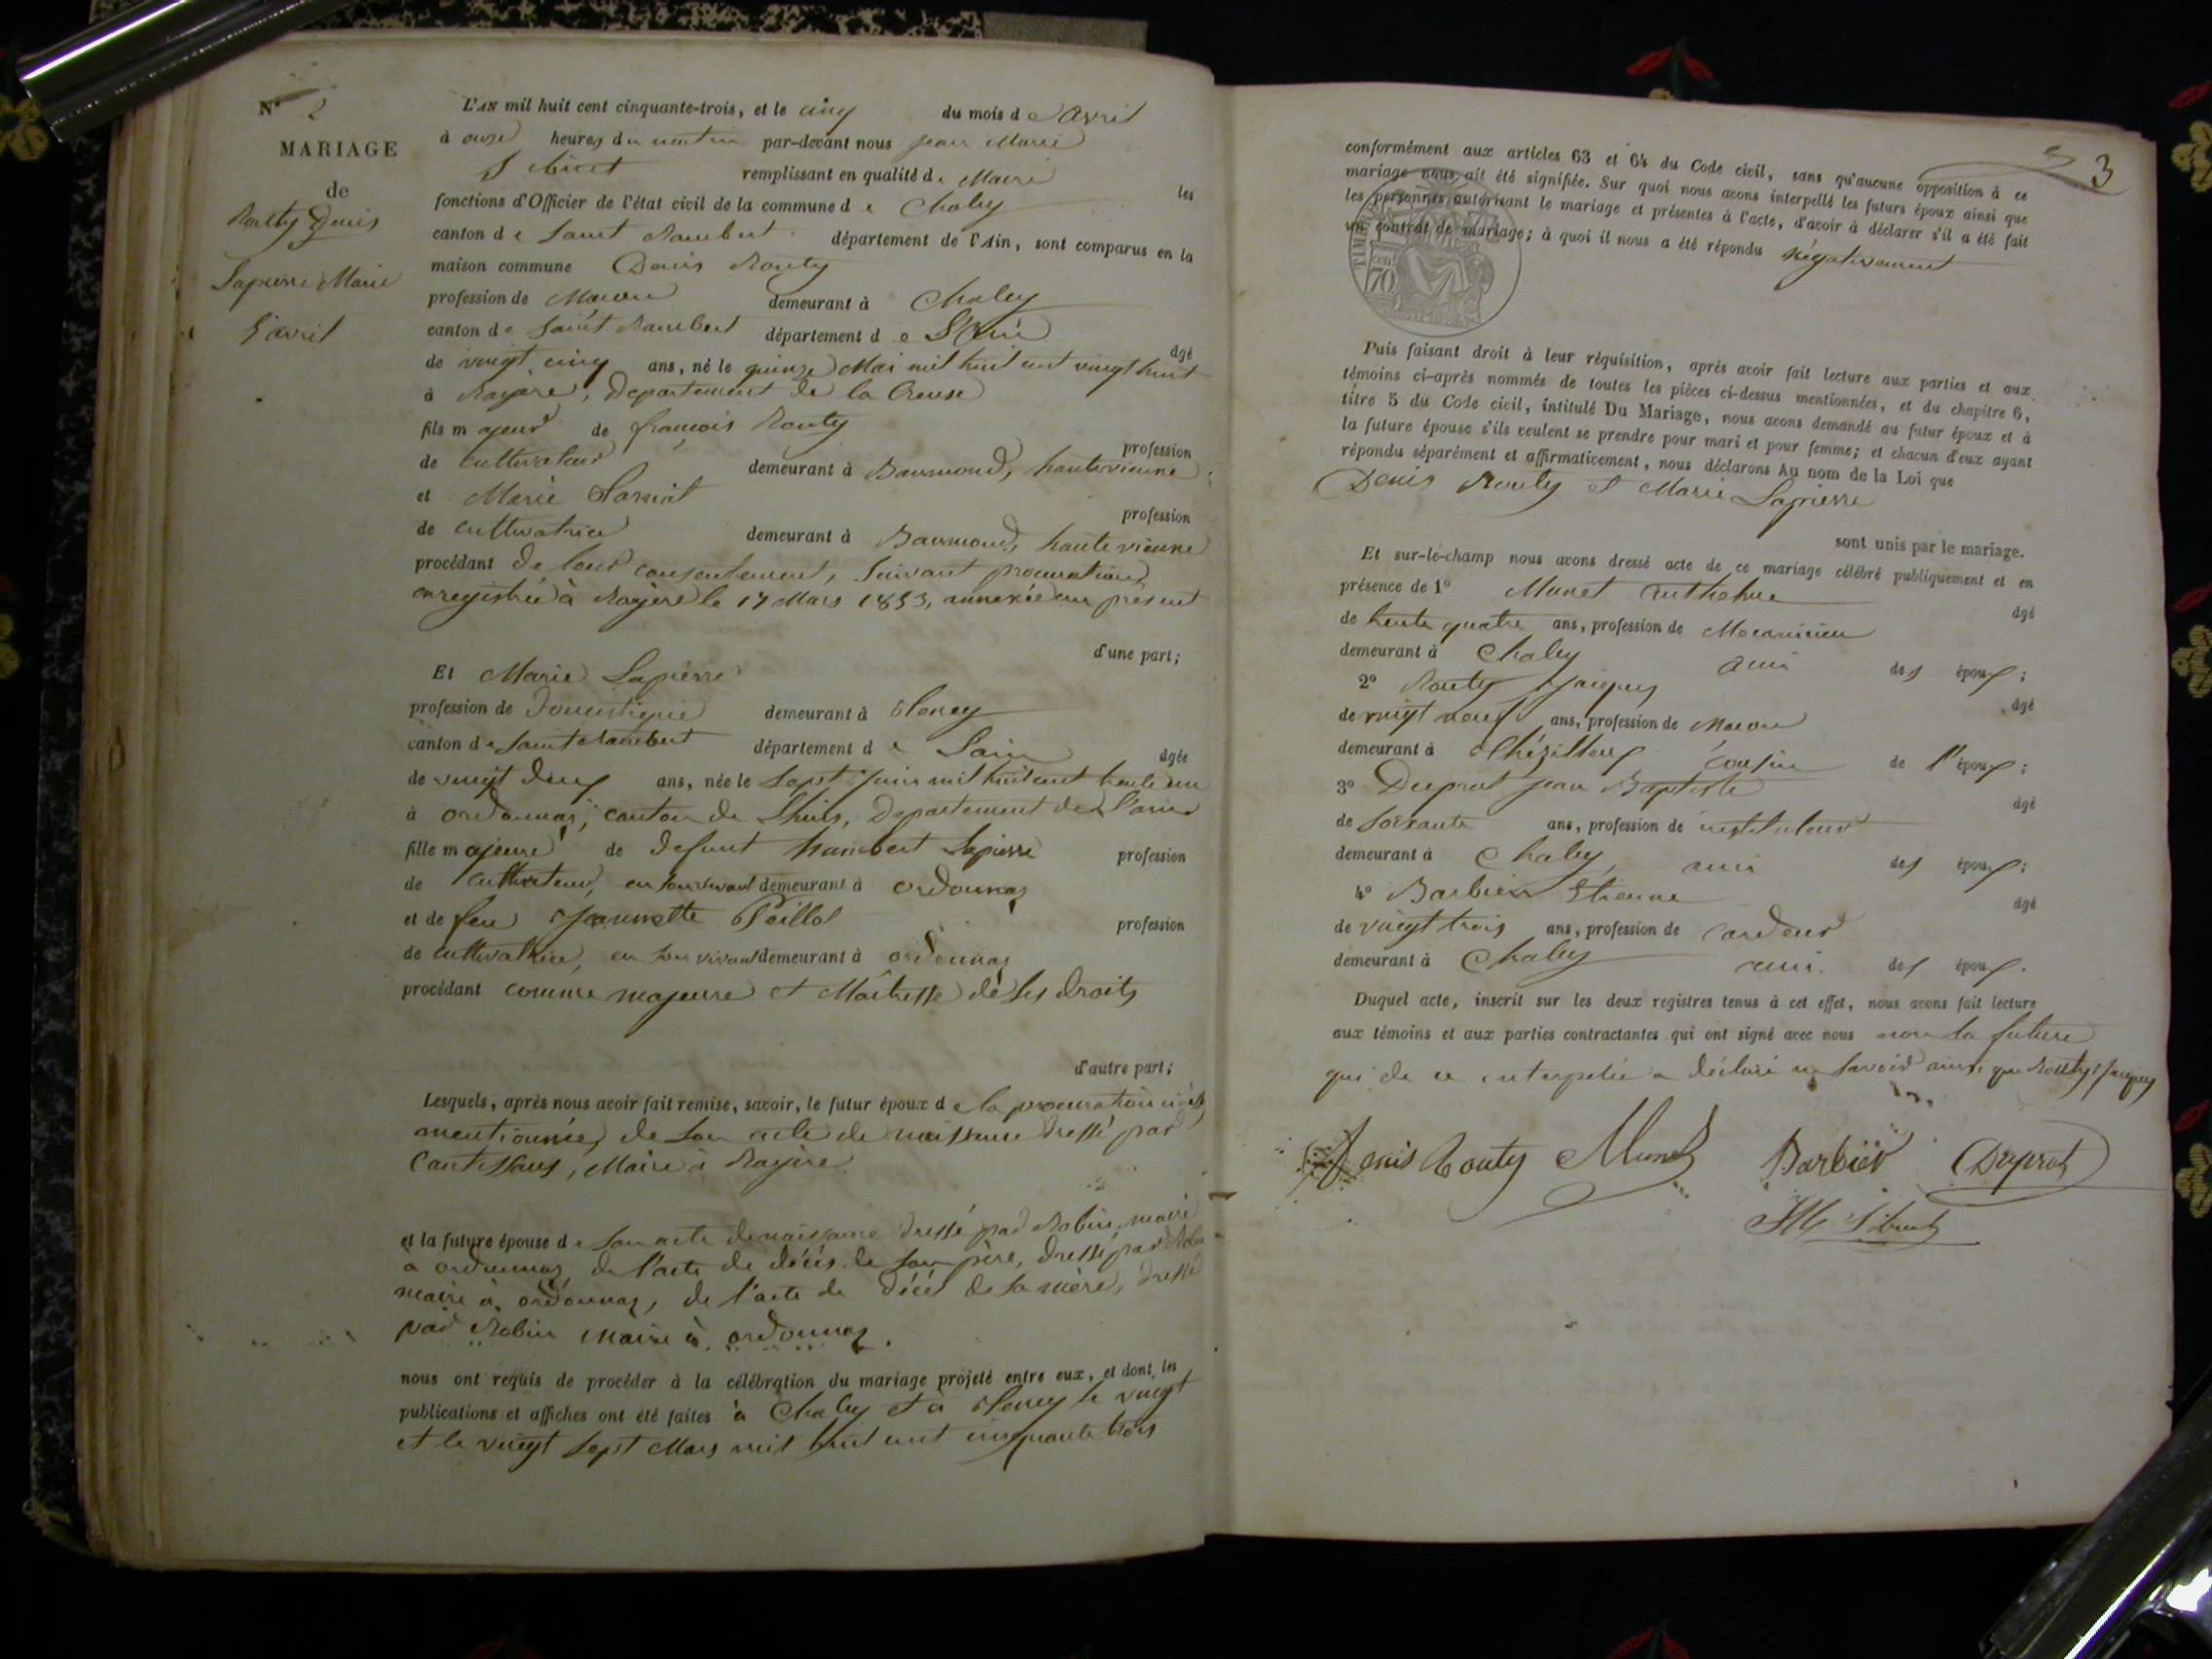 N° 2
MARIAGE
de
Routy Denis
Lapierre Marie
5 avril
L'AN mil huit cent cinquante-trois, et le cinq du mois de Avril
à onze heures du matin par-devant nous jean Marie
remplissant en qualité de Maire les
fonctions d'Officier de l'état civil de la commune de Chaley
canton de Saint Rambert département de l'Ain, sont comparus en la
maison commune Denis Routy
profession de Macon demeurant à Chaley
canton de Saint Rambert département de L'Ain âgé
de vingt cinq ans, né le quinze Mai mil huit cent vingt huit
à Royère, Departement de la Creuse
fils majeur de françois Routy profession
de cultivateur demeurant à haute vienne
et Marie profession
de cultivatrice demeurant à haute vienne
procédant de leur consentement, suivant procuration
enregistrée à Royère le 17 Mars 1853, annexée au présent
d'une part;
Et Marie Lapierre
profession de Domestique demeurant à Tenay
canton de Saint Rambert département de Lain âgée
de vingt deux ans, née le Sept Juin mil huit cent trente un
à ordonnaz, canton de Lhuis, Departement de l'ain
fille majeure de defunt humbert Lapierre profession
de cultivateur, en son vivant demeurant à ordonnaz
et de feu Jeannette Peillod profession
de cultivatrice, en son vivant demeurant à ordonnaz
procédant comme majeure et Maîtresse de ses droits
d'autre part;
Lesquels, après nous avoir fait remise, savoir, le futur époux de la procuration
mentionnée, de son acte de naissance dressé par
Maire à Royère
et la future épouse de son acte de naissance dressé par Robin, maire
à ordonnaz, de l'acte de décès de son père, dressé par Robin
maire à ordonnaz, de l'acte de décès de sa mère, dressé
par Robin Maire à ordonnaz.
nous ont requis de procéder à la célébration du mariage projeté entre eux, et dont les
publications et affiches ont été faites à Chaley et à Tenay le vingt
et le vingt sept Mars mil huit cent cinquante trois
3
conformément aux articles 63 et 64 du Code civil, sans qu'aucune opposition à ce
mariage nous ait été signifiée. Sur quoi nous avons interpellé les futurs époux ainsi que
les personnes autorisant le mariage et présentes à l'acte, d'avoir à déclarer s'il a été fait
un contrat de mariage; à quoi il nous a été répondu négativement
70
Puis faisant droit à leur réquisition, après avoir fait lecture aux parties et aux
témoins ci-après nommés de toutes les pièces ci-dessus mentionnées, et du chapitre 6,
titre 5 du Code civil, intitulé Du Mariage, nous avons demandé au futur époux et à
la future épouse s'ils veulent se prendre pour mari et pour femme; et chacun d'eux ayant
répondu séparément et affirmativement, nous déclarons Au nom de la Loi que
Denis Routy et Marie Lapierre
sont unis par le mariage.
Et sur-le-champ nous avons dressé acte de ce mariage célébré publiquement et en
présence de 1° Munet Anthelme âgé
de trente quatre ans, profession de Mecanicien
demeurant à Chaley ami des époux;
2° Routy Jacques âgé
de vingt neuf ans, profession de Macon
demeurant à cousin de l'époux;
3° Duprat jean Baptiste âgé
de soixante ans, profession de instituteur
demeurant à Chaley, ami des époux;
4° Barbier Etienne âgé
de vingt trois ans, profession de cardeur
demeurant à Chaley ami des époux.
Duquel acte, inscrit sur les deux registres tenus à cet effet, nous avons fait lecture
aux témoins et aux parties contractantes qui ont signé avec nous non la future
qui de ce interpelée a déclaré ne savoir ainsi que Routy Jacques
Denis Routy Munet Barbier Duprat